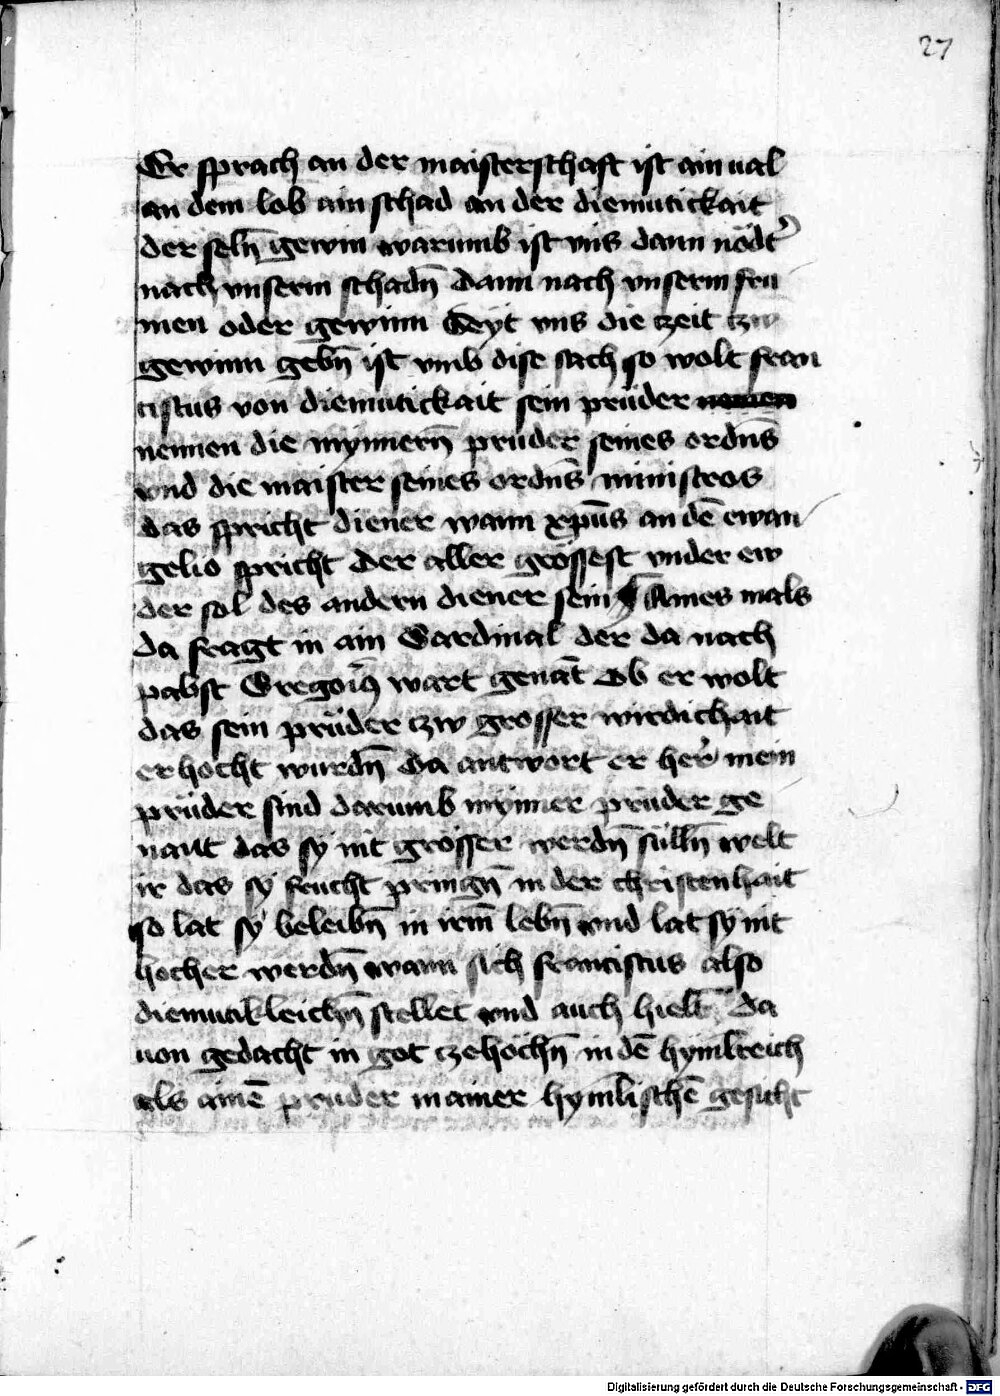 27
Er sprach an der maisterschaft ist ain ual
an dem lob ain schad an der diemutickait
der seln̄ gewin warumb ist vns dann nödt᷑
nach vnserm schadn̄ dann nach vnserm fru
men oder gewinn Seyt vns die zeit zw
gewinn gebn̄ ist vmb dise sach so wolt fran
ciscus von diemutickait sein prüder
nennen die mynnern̄ pruder seines ordn̄s
vnd die maister seines ordn̄s ministros
das spricht diener wann xp̄us an dē ewan
gelio spricht Der aller grössest vnder ew
der sol des andern diener sein Aines mals
da fragt in ain Cardinal der da nach
pabst Gregori᷒ wart genāt Ob er wolt
das sein prüder zw grosser wirdichait
erhocht wurdn̄ Da antwort er her᷑ mein
prüder sind darumb mynner prüder ge
nant das sy nit grösser werdn̄ sulln̄ welt
ir das sy frucht pringn̄ in der christenhait
so lat sy beleibn̄ in irm̄ lebn̄ vnd lat sy nit
hocher werdn̄ wann sich franciscus also
diemutikleichn̄ stellet vnd auch hielt Da
uon gedacht in got zehöchn̄ in dē hymlreich
als ainē pruder in ainer hymlischē gesicht
Digitalisierung gefördert durch die Deutsche Forschungsgemeinschaft - DFG